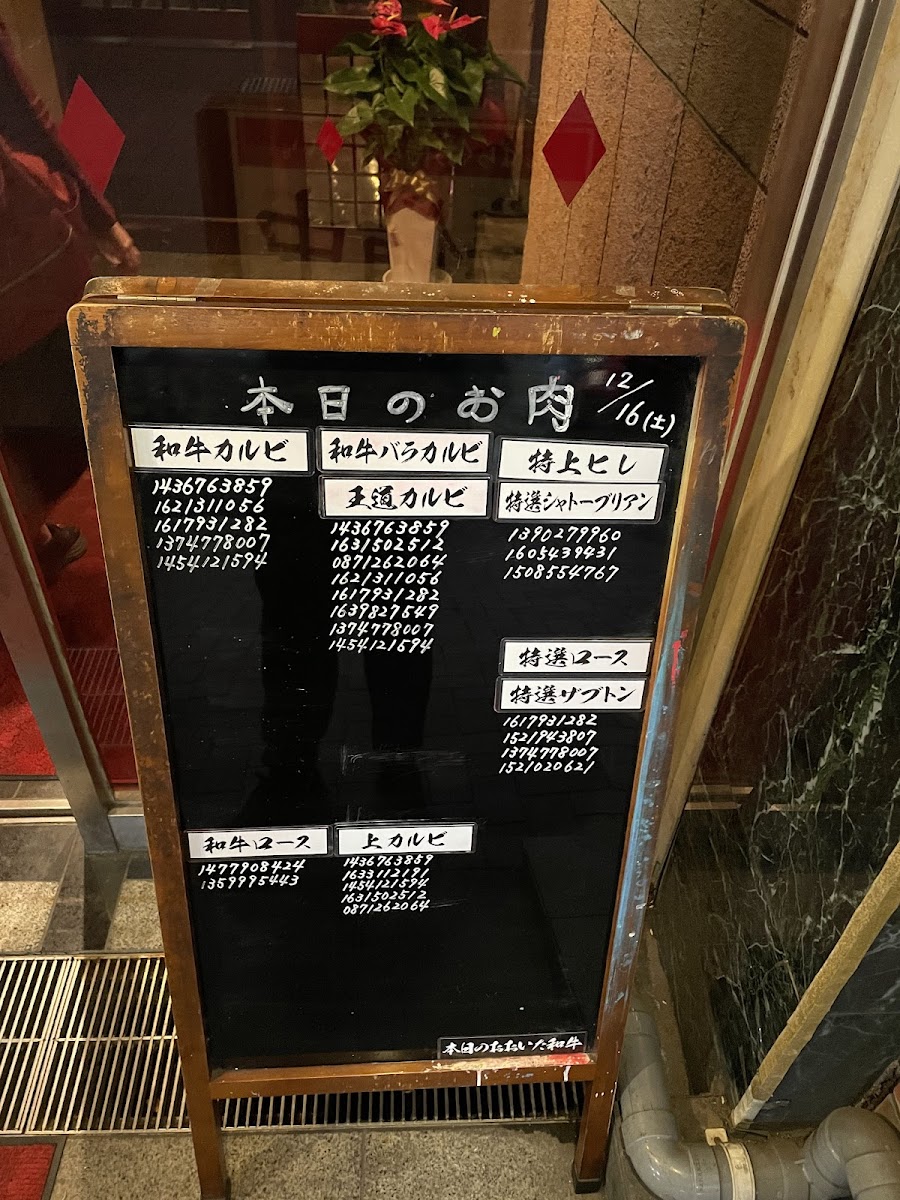 本日のお肉 12/16(土)
和牛カルビ
1436763859
1621311056
1617931282
1374778007
1454121594
和牛バラカルビ
王道カルビ
1436763859
1631502512
0871262064
1621311056
1617931282
1639827549
1374778007
1454121594
特上ヒレ
特選シャトーブリアン
1390279960
1605439431
1508554767
特選ロース
特選ザブトン
1617931282
1521943807
1374778007
1521020621
和牛ロース
1477908424
1359995443
上カルビ
1436763859
1633112191
1454121594
1631502512
0871262064
本日のおおいた和牛